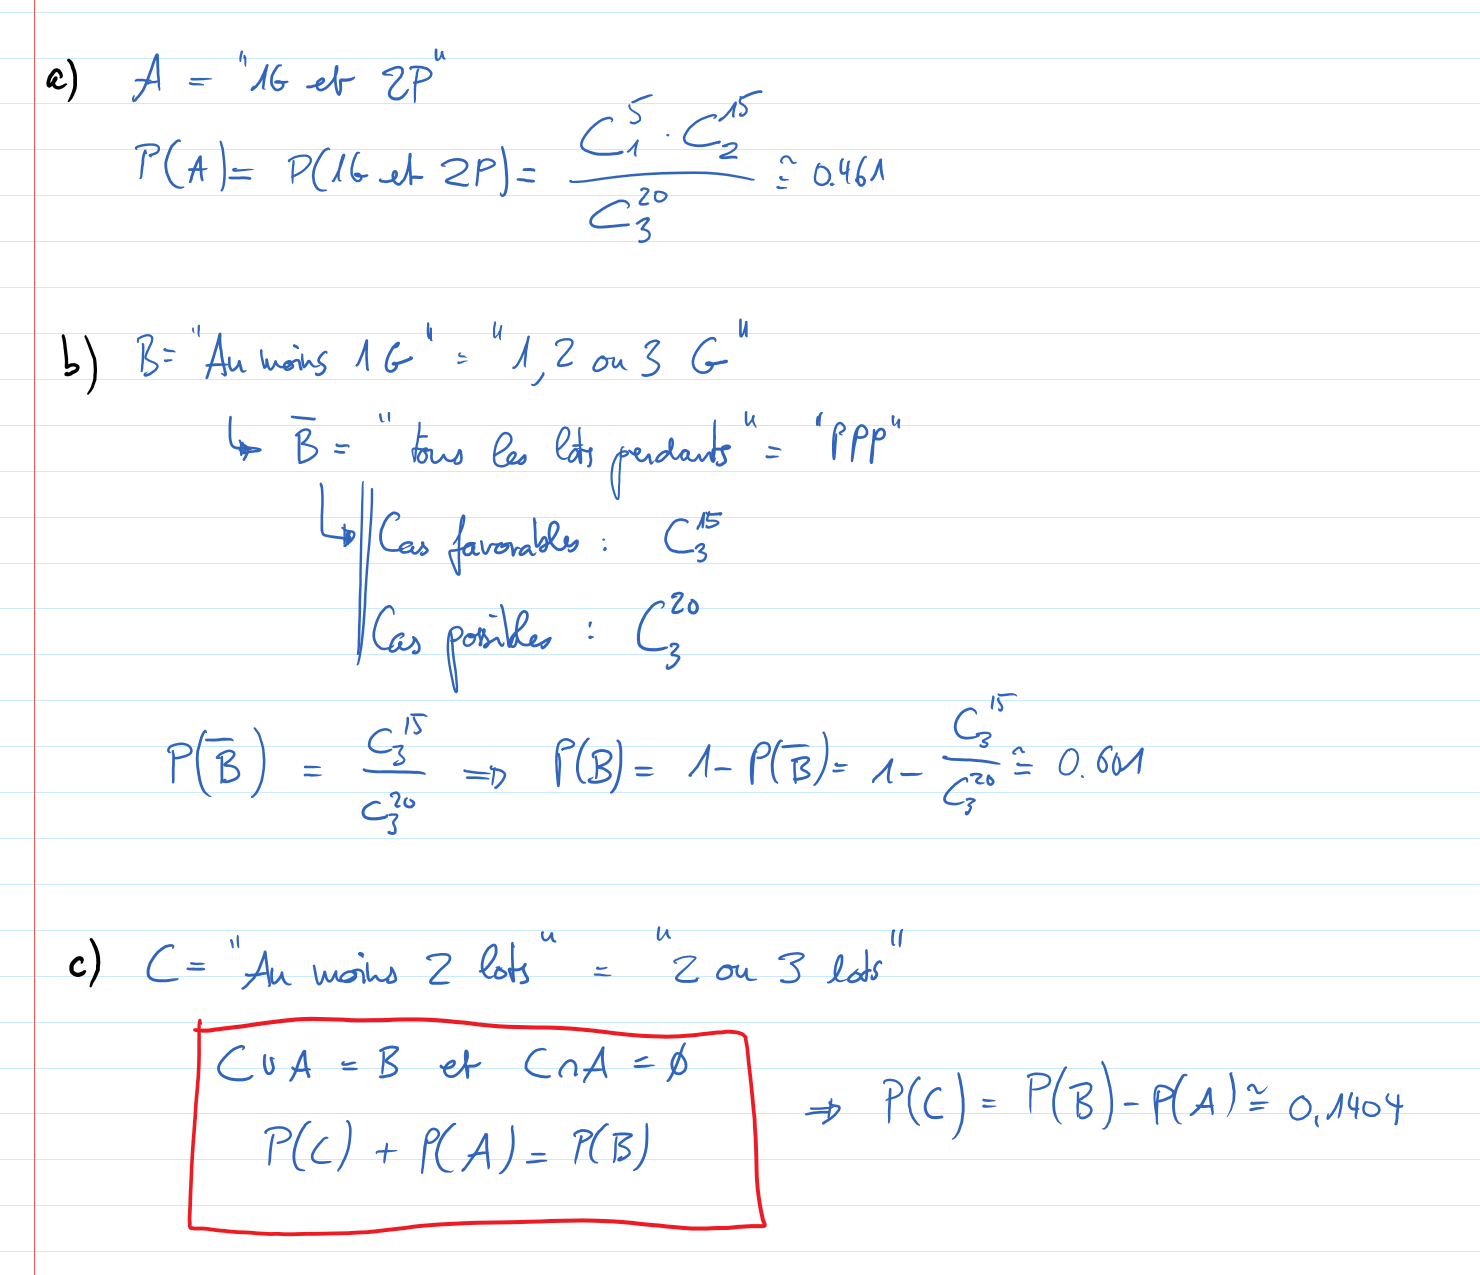 a) A = "1G et 2P"
P(A) = P(1G et 2P) = C₁⁵ · C₂¹⁵ / C₃²⁰ ≅ 0.461
b) B = "Au moins 1G" = "1, 2 ou 3 G"
↳ B̅ = "tous les lots perdants" = "PPP"
↳ Cas favorables : C₃¹⁵
Cas possibles : C₃²⁰
P(B̅) = C₃¹⁵ / C₃²⁰ ⇒ P(B) = 1 - P(B̅) = 1 - C₃¹⁵ / C₃²⁰ ≅ 0.601
c) C = "Au moins 2 lots" = "2 ou 3 lots"
C ∪ A = B et C ∩ A = ∅
P(C) + P(A) = P(B)
⇒ P(C) = P(B) - P(A) ≅ 0,1404